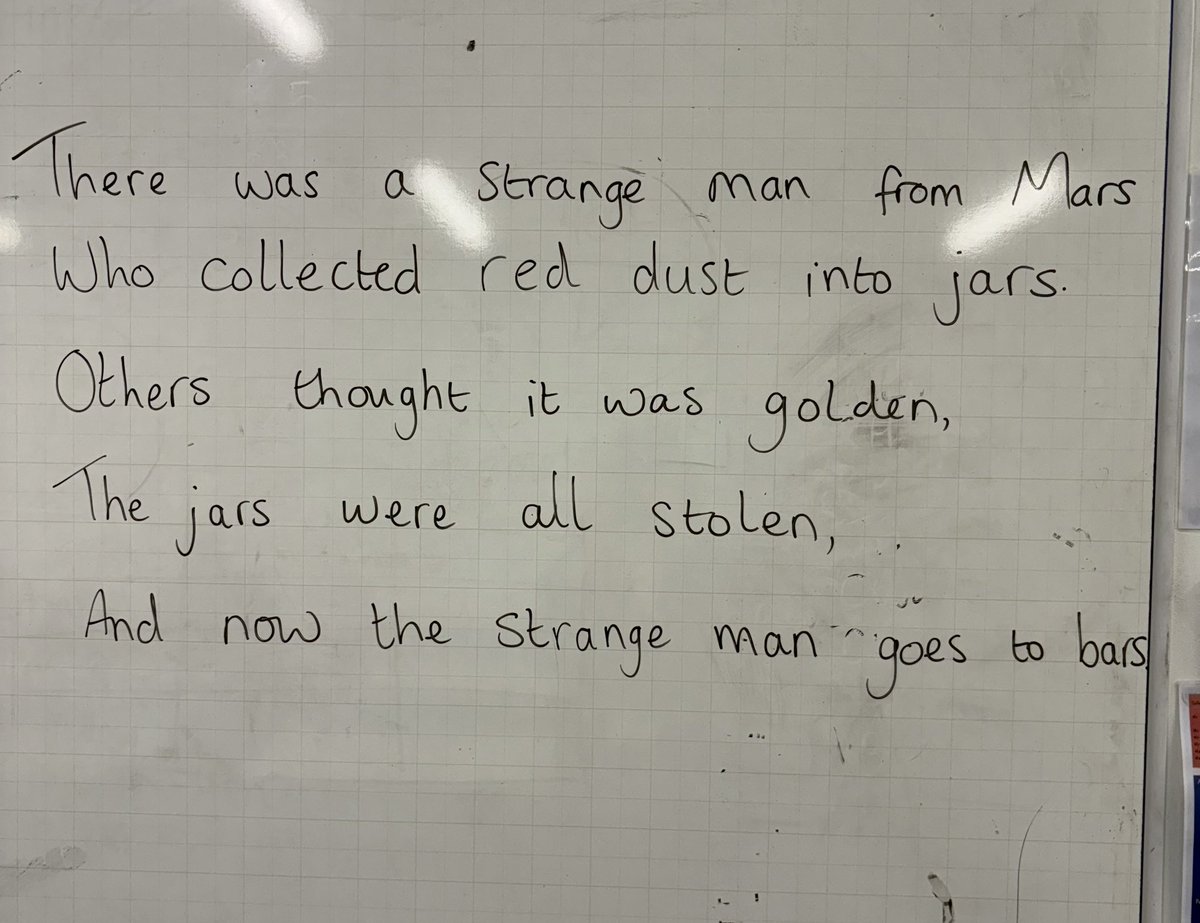 There was a strange man from Mars
Who collected red dust into jars.
Others thought it was golden,
The jars were all stolen,
And now the strange man goes to bars